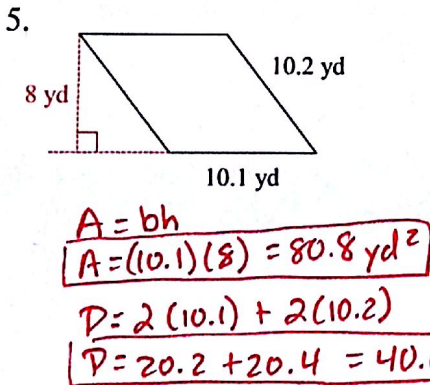 5.
10.2 yd
8 yd
10.1 yd
A = bh
A = (10.1)(8) = 80.8 yd²
P = 2(10.1) + 2(10.2)
P = 20.2 + 20.4 = 40.